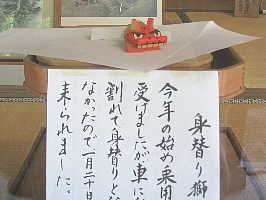 身替り獅
今年の始め乗用
受ましたが車に
割れて身替りとな
なかったので一月二十日
来られました。